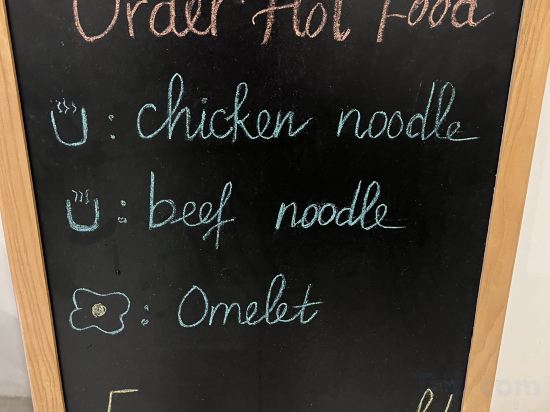 Order Hot Food
: chicken noodle
: beef noodle
: Omelet